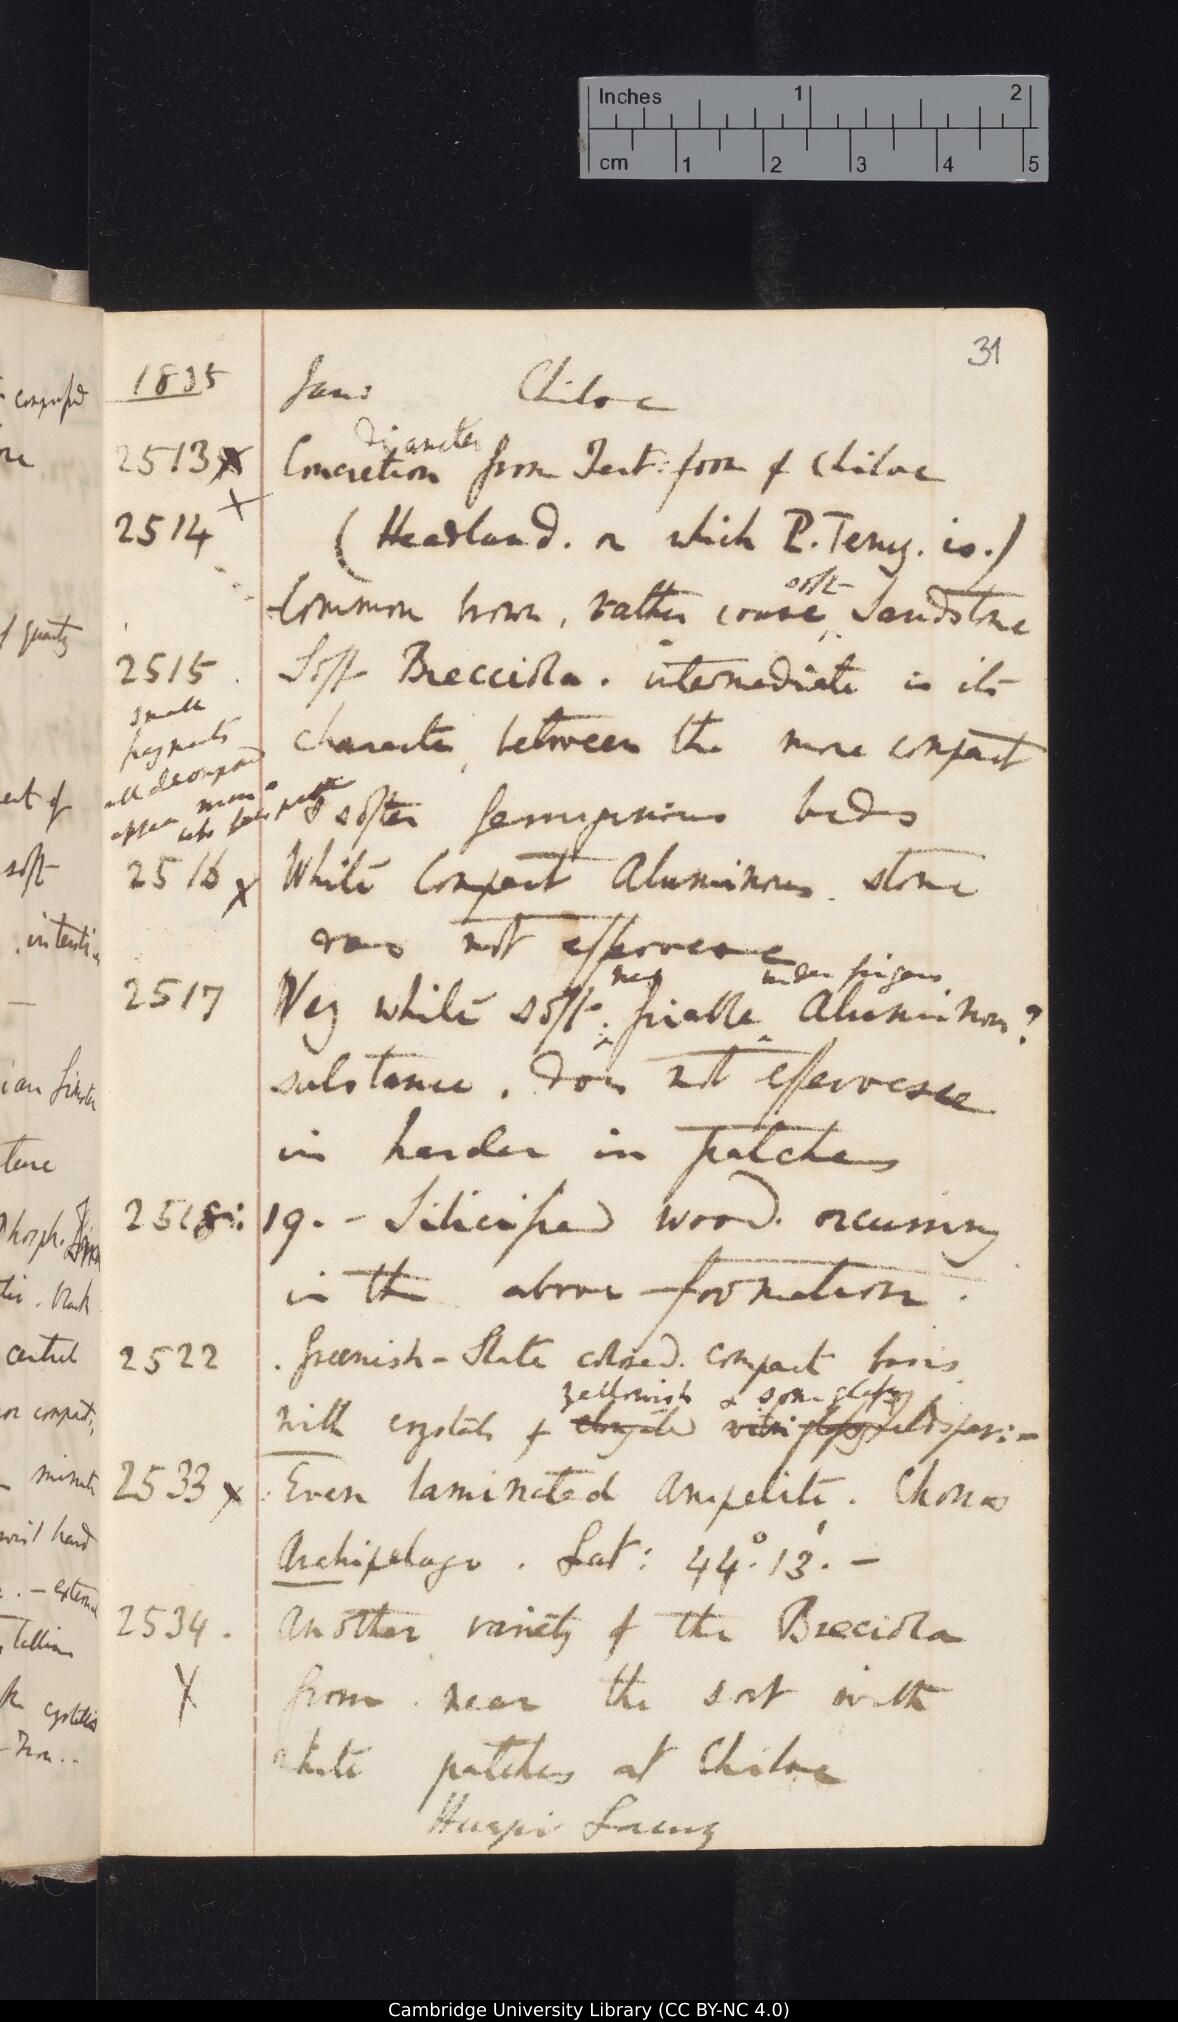 Inches 1 2
cm 1 2 3 4 5
31
1835 Jan: Chiloe
diameter
2513 X Concretion from Tert: form of Chiloe
X
2514 (Headland. on which P. Tenuy. is.)
soft
Common brown, rather coarse, Sandstone
2515. Soft Brecciola. intermediate in its
small
fragments
character, between the more compact
all decomposed
appear
& softer ferruginous beds
2516 X White Compact Aluminous stone
does not effervesce
very under fingers
2517 Very white soft friable Aluminous?
substance. does not effervesce
is harder in patches
2518: 19. - Silicified wood. occurring
in the above formation.
2522 . Greenish-Slate colored. compact basis
yellowish & some glassy
with crystals of elongated glassy feldspar: -
2533 X Even laminated Ampelite. Chonos
Archipelago. Lat: 44°.13'. -
2534. Another variety of the Brecciola
X from near the sort with
white patches at Chiloe
Huapi Lacuy
compact
of quartz
soft
black
central
minute
hard
Cambridge University Library (CC BY-NC 4.0)